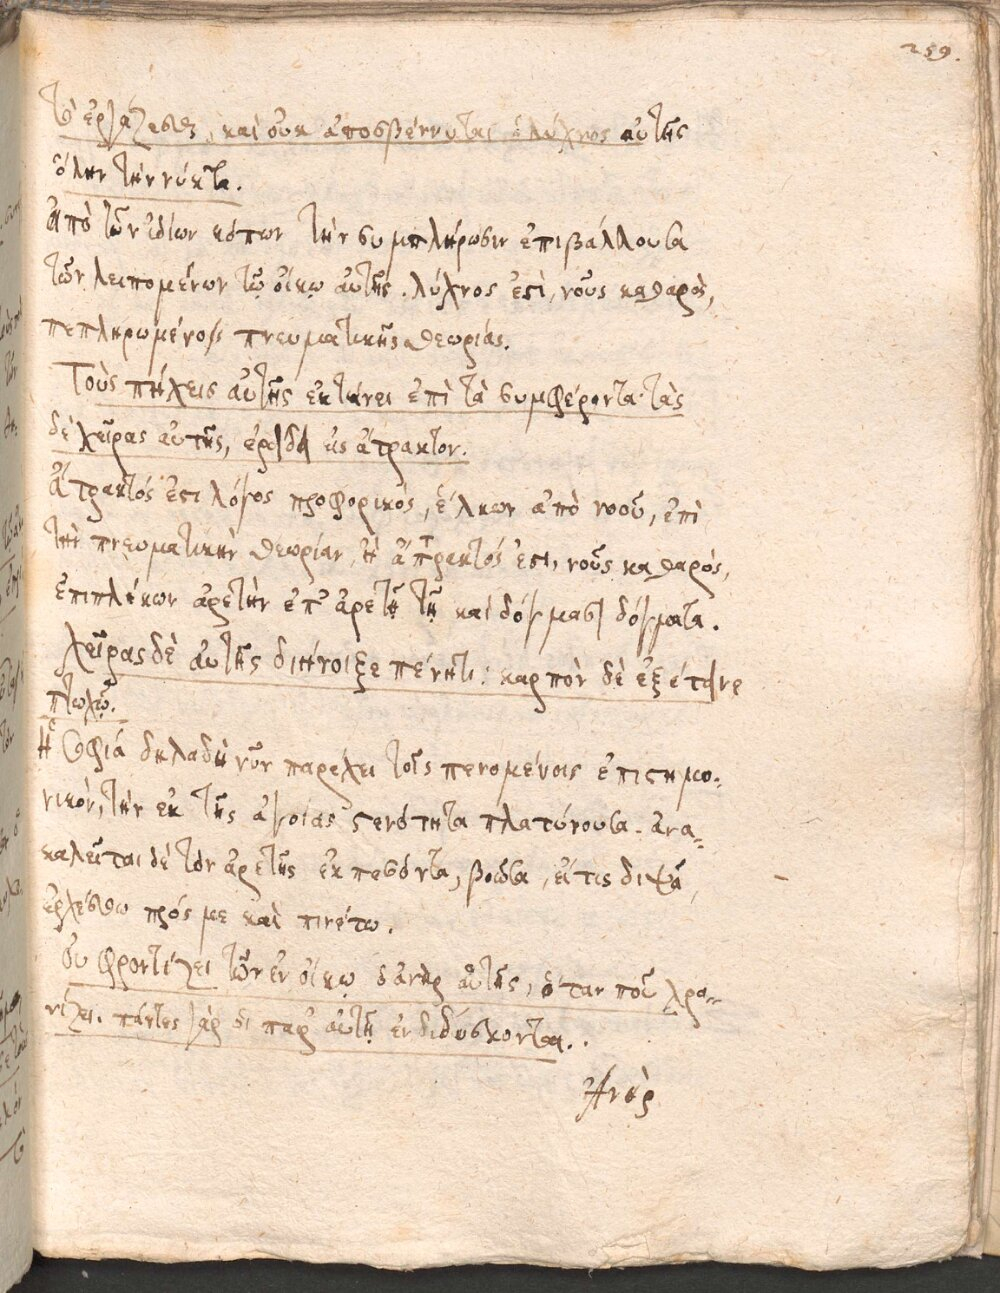 259.
τὸ ἐργάζεσθαι, καὶ οὐκ ἀποσβέννυται ὁ λύχνος αὐτῆς
ὅλην τὴν νύκτα.
Ἀπὸ τῶν ἰδίων κόπων τὴν συμπλήρωσιν ἐπιβάλλουσα
τῶν λειπομένων τῷ οἴκῳ αὐτῆς. λύχνος ἐστὶ, νοῦς καθαρὸς,
πεπληρωμένος πνευματικῆς θεωρίας.
Τοὺς πήχεις αὐτῆς ἐκτείνει ἐπὶ τὰ συμφέροντα· τὰς
δὲ χεῖρας αὐτῆς, ἐρείδει εἰς ἄτρακτον.
ἄτρακτός ἐστι λόγος προφορικός, ἕλκων ἀπὸ νοοῦ, ἐπὶ
τὴν πνευματικὴν θεωρίαν, ἢ ἄτρακτός ἐστι, νοῦς καθαρός,
ἐπιπλέκων ἀρετὴν ἐπ' ἀρετῇ τῇ καὶ δόγμασι δόγματα.
χεῖρας δὲ αὐτῆς διήνοιξε πένητι: καρπὸν δὲ ἐξέτεινε
πτωχῷ.
ἡ σοφιά δηλαδὴ νῦν παρέχει τοῖς πενομένοις ἐπιστημο-
νικὸν, τὴν ἐκ τῆς ἀγνοίας στενότητα πλατύνουσα. ἀνα-
καλεῖται δὲ τὸν ἀρετῆς ἐκπεσόντα, βοῶσα, εἴ τις διψᾷ,
ἐρχέσθω πρός με καὶ πινέτω.
Οὐ φροντίζει τῶν ἐν οἴκῳ ὁ ἀνὴρ αὐτῆς, ὅταν ποῦ χρο-
νίζει. πάντες γὰρ οἱ παρ' αὐτῇ ἐνδιδύσκονται.
Ἀνὴρ